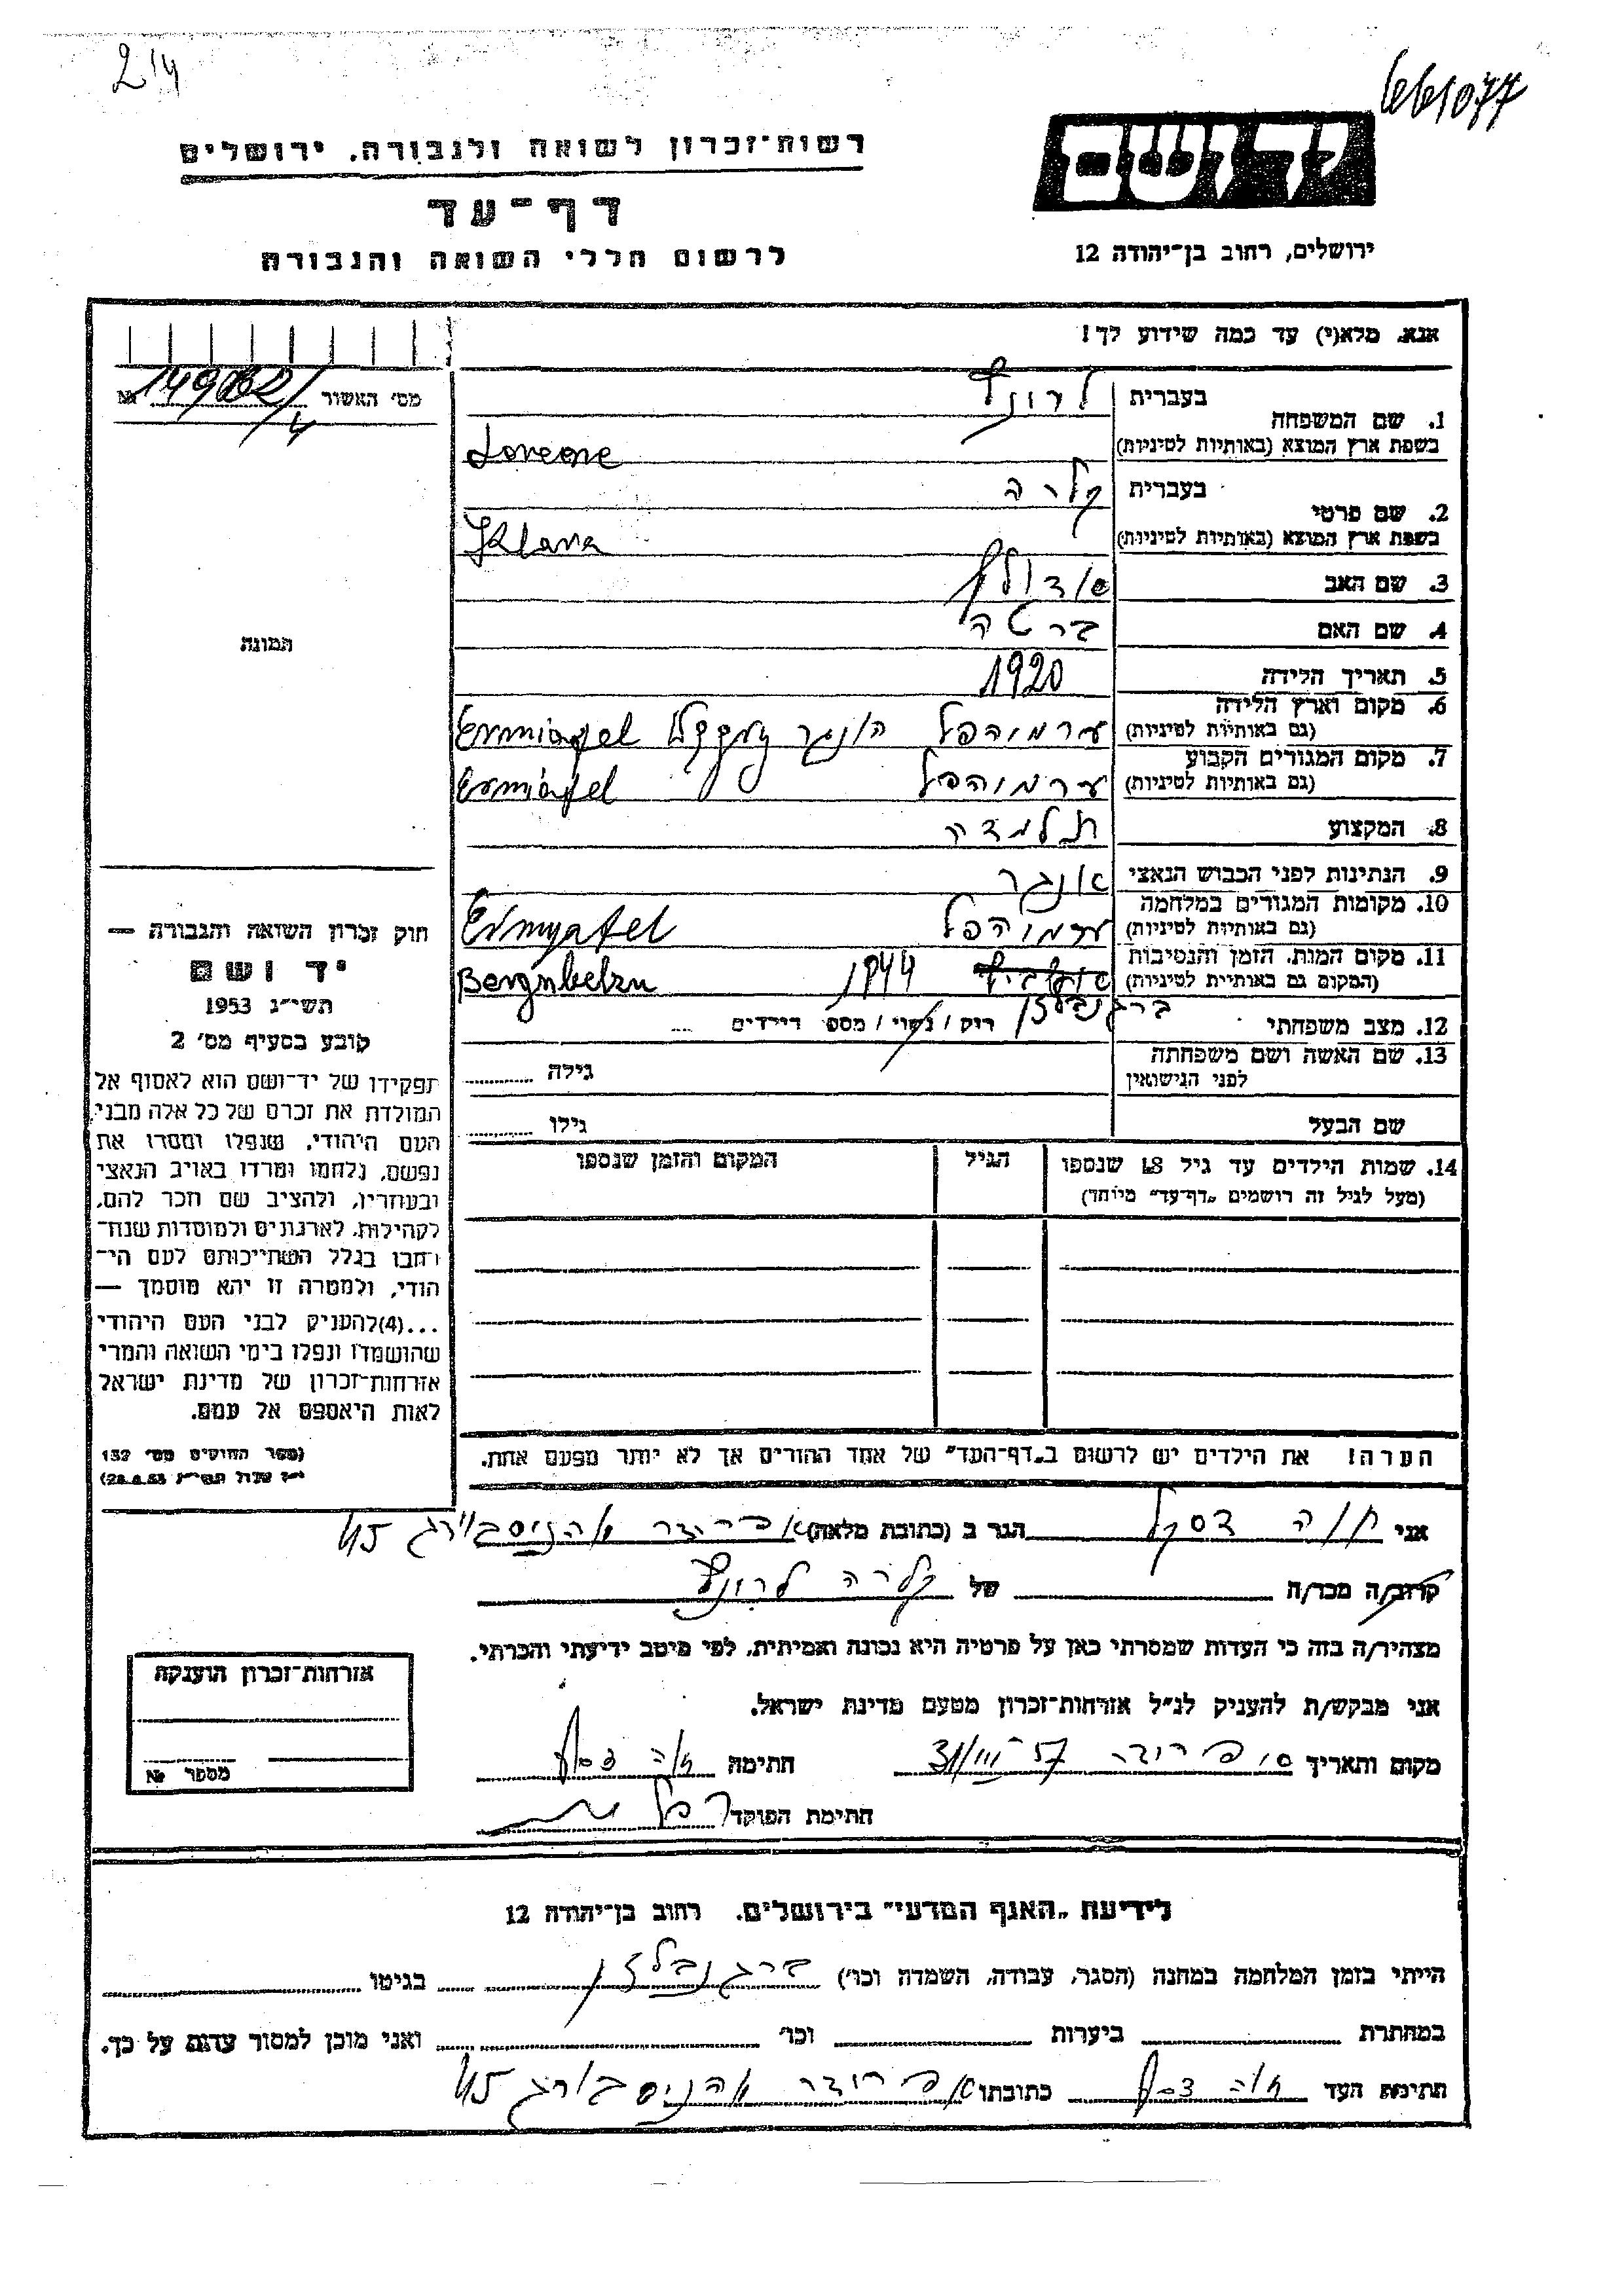 214
661077
רשות־זכרון לשואה ולגבורה, ירושלים
דף־עד
לרשום חללי השואה והגבורה
יד ושם
ירושלים, רחוב בן־יהודה 12
אנא, מלא(י) עד כמה שידוע לך!
מס׳ האשור №
1. שם המשפחה
בעברית
בשפת ארץ המוצא (באותיות לטיניות)
2. שם פרטי
בעברית קלרה
בשפת ארץ המוצא (באותיות לטיניות) Klara
3. שם האב אדולף
4. שם האם ברטה
5. תאריך הלידה 1920
6. מקום וארץ הלידה
(גם באותיות לטיניות)
7. מקום המגורים הקבוע
(גם באותיות לטיניות)
8. המקצוע תלמדה
9. הנתינות לפני הכבוש הנאצי אונגר
10. מקומות המגורים במלחמה
(גם באותיות לטיניות)
11. מקום המות, הזמן והנסיבות
(המקום גם באותיות לטיניות) 1944 Bergnbelzn
ברגנבלזן
12. מצב משפחתי רוק / נשוי / מספר הילדים
13. שם האשה ושם משפחתה
לפני הנישואין
גילה
שם הבעל גילו
14. שמות הילדים עד גיל 18 שנספו
(מעל לגיל זה רושמים „דף־עד״ מיוחד)
הגיל
המקום והזמן שנספו
הערה! את הילדים יש לרשום ב„דף־העד״ של אחד ההורים אך לא יותר מפעם אחת.
תמונה
חוק זכרון השואה והגבורה —
יד ושם
תשי״ג 1953
קובע בסעיף מס׳ 2
תפקידו של יד־ושם הוא לאסוף אל
המולדת את זכרם של כל אלה מבני
העם היהודי, שנפלו ומסרו את
נפשם, נלחמו ומרדו באויב הנאצי
ובעוזריו, ולהציב שם וזכר להם,
לקהילות, לארגונים ולמוסדות שנח־
רחבו בגלל השתייכותם לעם הי־
הודי, ולמטרה זו יהא מוסמך —
...(4)להעניק לבני העם היהודי
שהושמדו ונפלו בימי השואה והמרי
אזרחות־זכרון של מדינת ישראל
לאות היאספם אל עמם.
(ספר החוקים מס׳ 132
י״ז אלול תשי״ג 28.8.53)
אני חוה הגר ב (כתובת מלאה)
קרוב/ה מכר/ה של קלרה
מצהיר/ה בזה כי העדות שמסרתי כאן על פרטיה היא נכונה ואמיתית, לפי מיטב ידיעתי והכרתי.
אני מבקש/ת להעניק לנ״ל אזרחות־זכרון מטעם מדינת ישראל.
מקום ותאריך חתימה
חתימת הפוקד
אזרחות־זכרון הוענקה
מספר №
לידיעת „האגף המדעי״ בירושלים, רחוב בן־יהודה 12
הייתי בזמן המלחמה במחנה (הסגר, עבודה, השמדה וכו׳) ברגנבלזן בגיטו
במחתרת ביערות וכו׳ ואני מוכן למסור עדות על כך.
חתימת העד כתובתו